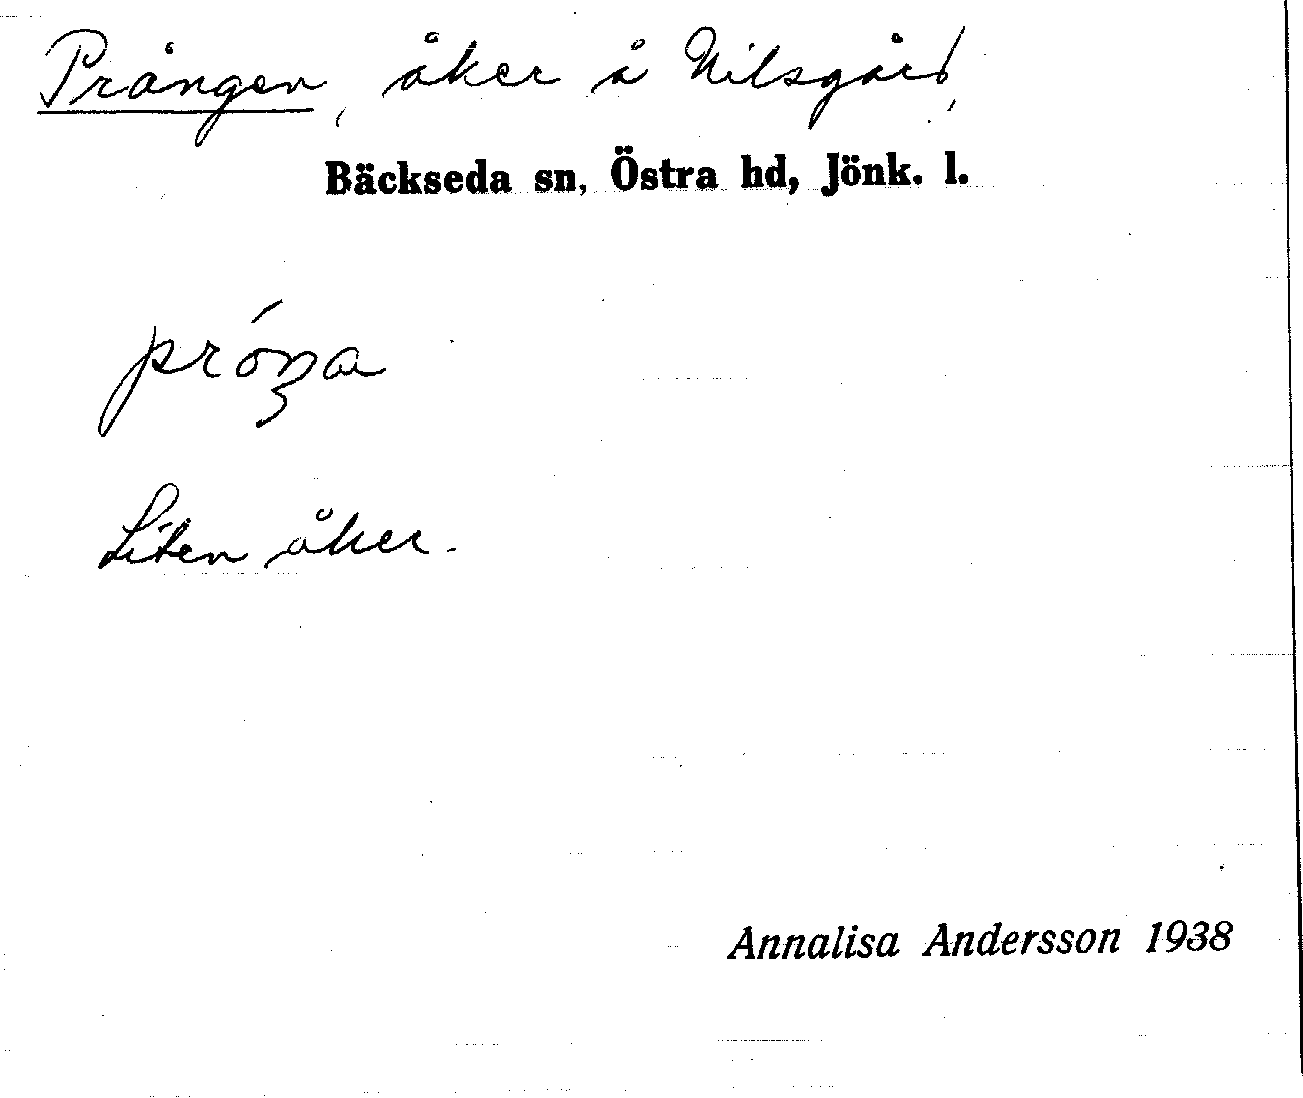 Prången, åker å Nilsgård,
Bäckseda sn, Östra hd, Jönk. l.
próŋa
Liten åker.
Annalisa Andersson 1938